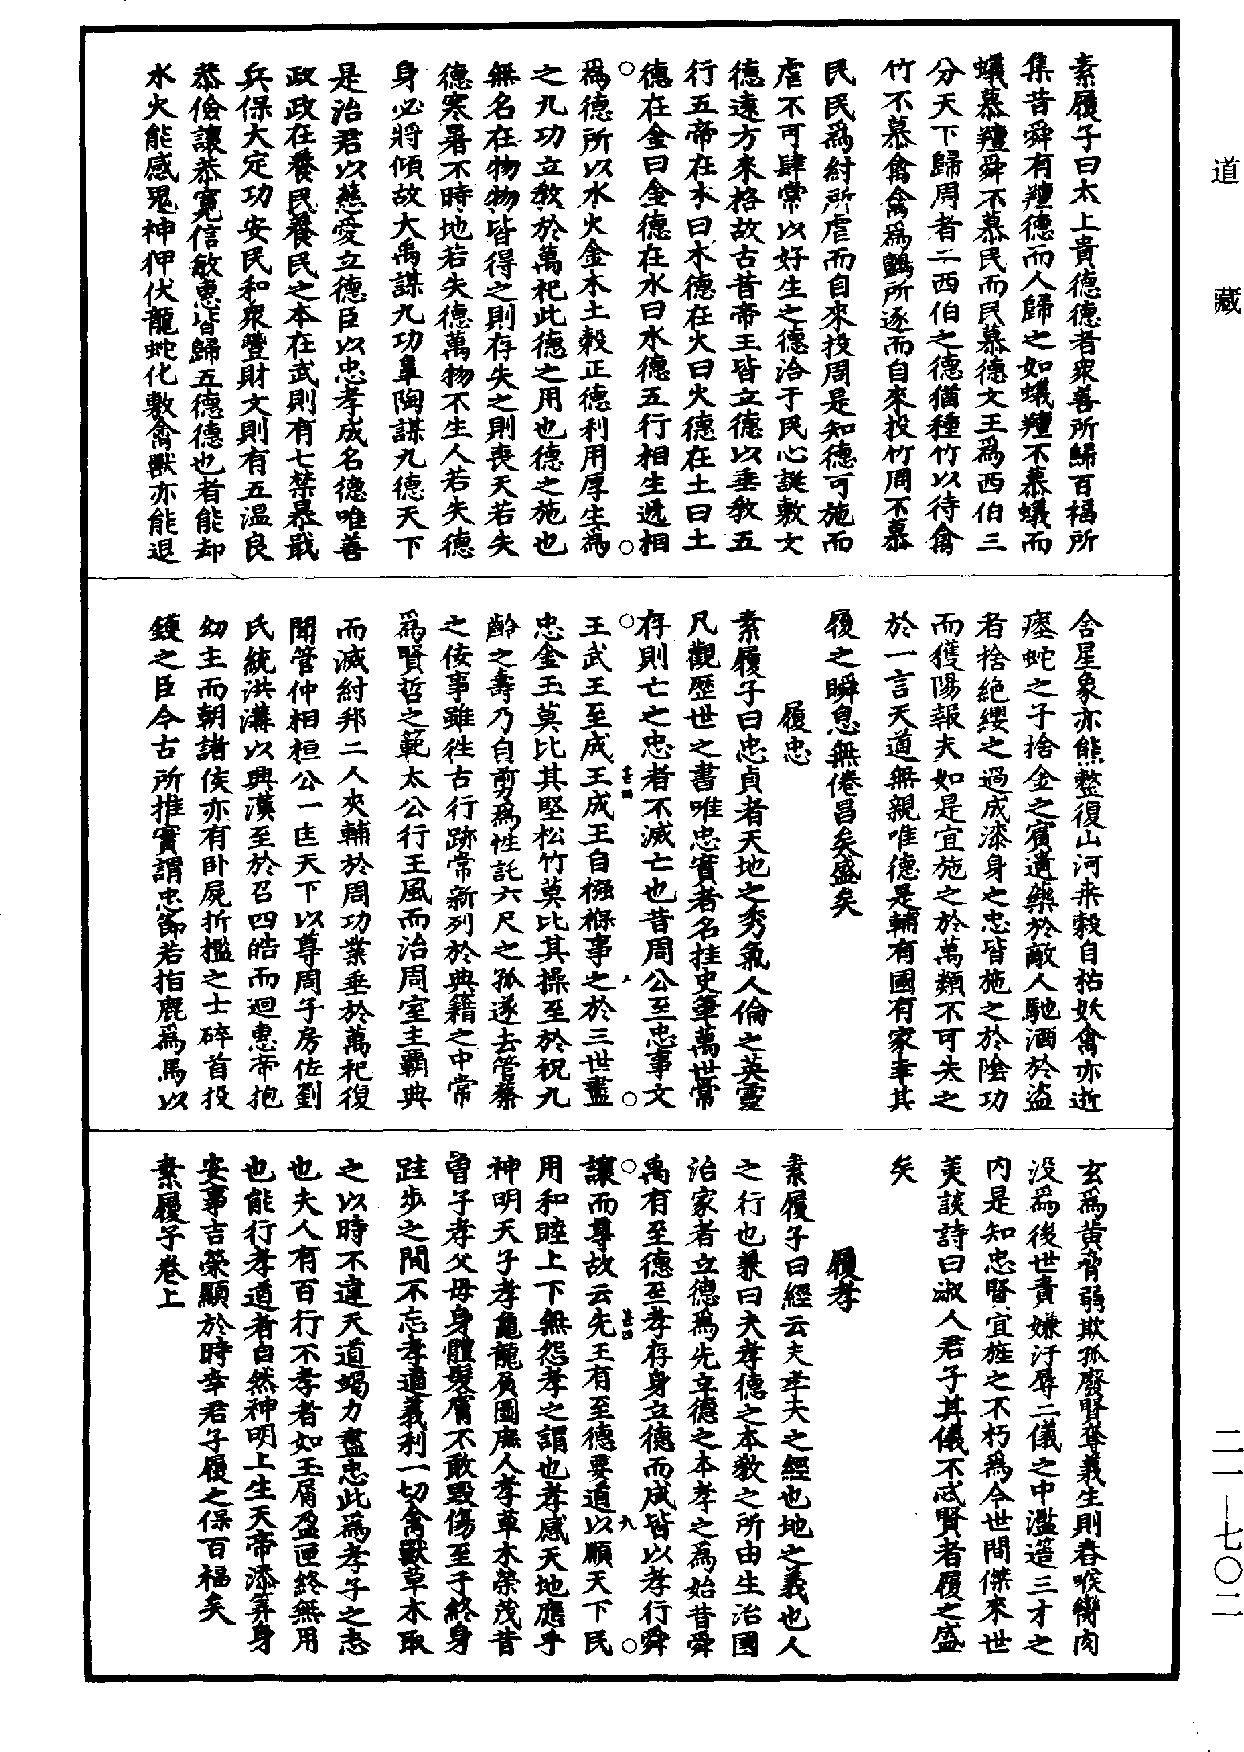 道藏
素履子曰太上貴德德者衆善所歸百福所
集昔舜有羶德而人歸之如蟻羶不慕蟻而
蟻慕羶舜不慕民而民慕德文王爲西伯三
分天下歸周者二西伯之德猶種竹以待禽
竹不慕禽禽爲鸇所逐而自來投竹周不慕
民民爲紂所虐而自來投周是知德可施而
虐不可肆常以好生之德洽于民心誕敷文
德遠方來格故古昔帝王皆立德以垂教五
行五帝在木曰木德在火曰火德在土曰土
德在金曰金德在水曰水德五行相生遞相
爲德所以水火金木土穀正德利用厚生爲
之九功立教於萬祀此德之用也德之施也
無名在物物皆得之則存失之則喪天若失
德寒暑不時地若失德萬物不生人若失德
身必將傾故大禹謀九功臯陶謀九德天下
是治君以慈愛立德臣以忠孝成名德唯善
政政在養民養民之本在武則有七禁暴戢
兵保大定功安民和衆豐財文則有五溫良
恭儉讓恭寬信敏惠皆歸五德德也者能却
水火能感鬼神狎伏龍蛇化敷禽獸亦能退
舍星象亦能整復山河来穀自祐妖禽亦逝
瘞蛇之子捨金之賓遺藥於敵人馳酒於盜
者捨絶纓之過成漆身之忠皆施之於陰功
而獲陽報夫如是宜施之於萬類不可失之
於一言天道無親唯德是輔有國有家幸其
履之瞬息無倦昌矣盛矣
履忠
素履子曰忠貞者天地之秀氣人倫之英靈
凡觀歷世之書唯忠實者名挂史筆萬世常
存則亡之忠者不滅亡也昔周公至忠事文
王武王至成王成王自襁褓事之於三世盡
忠金玉莫比其堅松竹莫比其操至於祝九
齡之壽乃自剪爲性託六尺之孤遂去管蔡
之佞事雖徃古行跡常新列於典籍之中常
爲賢哲之範太公行王風而治周室主覇典
而滅紂邦二人夾輔於周功業垂於萬祀復
聞管仲相桓公一匡天下以尊周子房佐劉
氏統洪溝以興漢至於召四皓而迴惠帝抱
幼主而朝諸侯亦有卧屍折檻之士碎首投
鑊之臣今古所推實謂忠節若指鹿爲馬以
玄爲黄脅弱欺孤廢賢奪義生則舂喉臠肉
没爲後世責嫌汙辱二儀之中濫造三才之
内是知忠賢宜旌之不朽爲今世間傑來世
美談詩曰淑人君子其儀不忒賢者履之盛
矣
履孝
素履子曰經云夫孝天之經也地之義也人
之行也羕曰夫孝德之本教之所由生治國
治家者立德爲先立德之本孝之爲始昔舜
禹有至德至孝存身立德而成皆以孝行舜
讓而尊故云先王有至德要道以順天下民
用和睦上下無怨孝之謂也孝感天地應乎
神明天子孝龜龍負圖庶人孝草木榮茂昔
曾子孝父母身體髮膚不敢毁傷至于終身
跬步之間不忘孝道義利一切禽獸草木取
之以時不違天道竭力盡忠此爲孝子之志
也夫人有百行不孝者如玉屑盈匣終無用
也能行孝道者自然神明上生天帝添筭身
安事吉榮顯於時幸君子履之保百福矣
素履子卷上
二一—七〇二